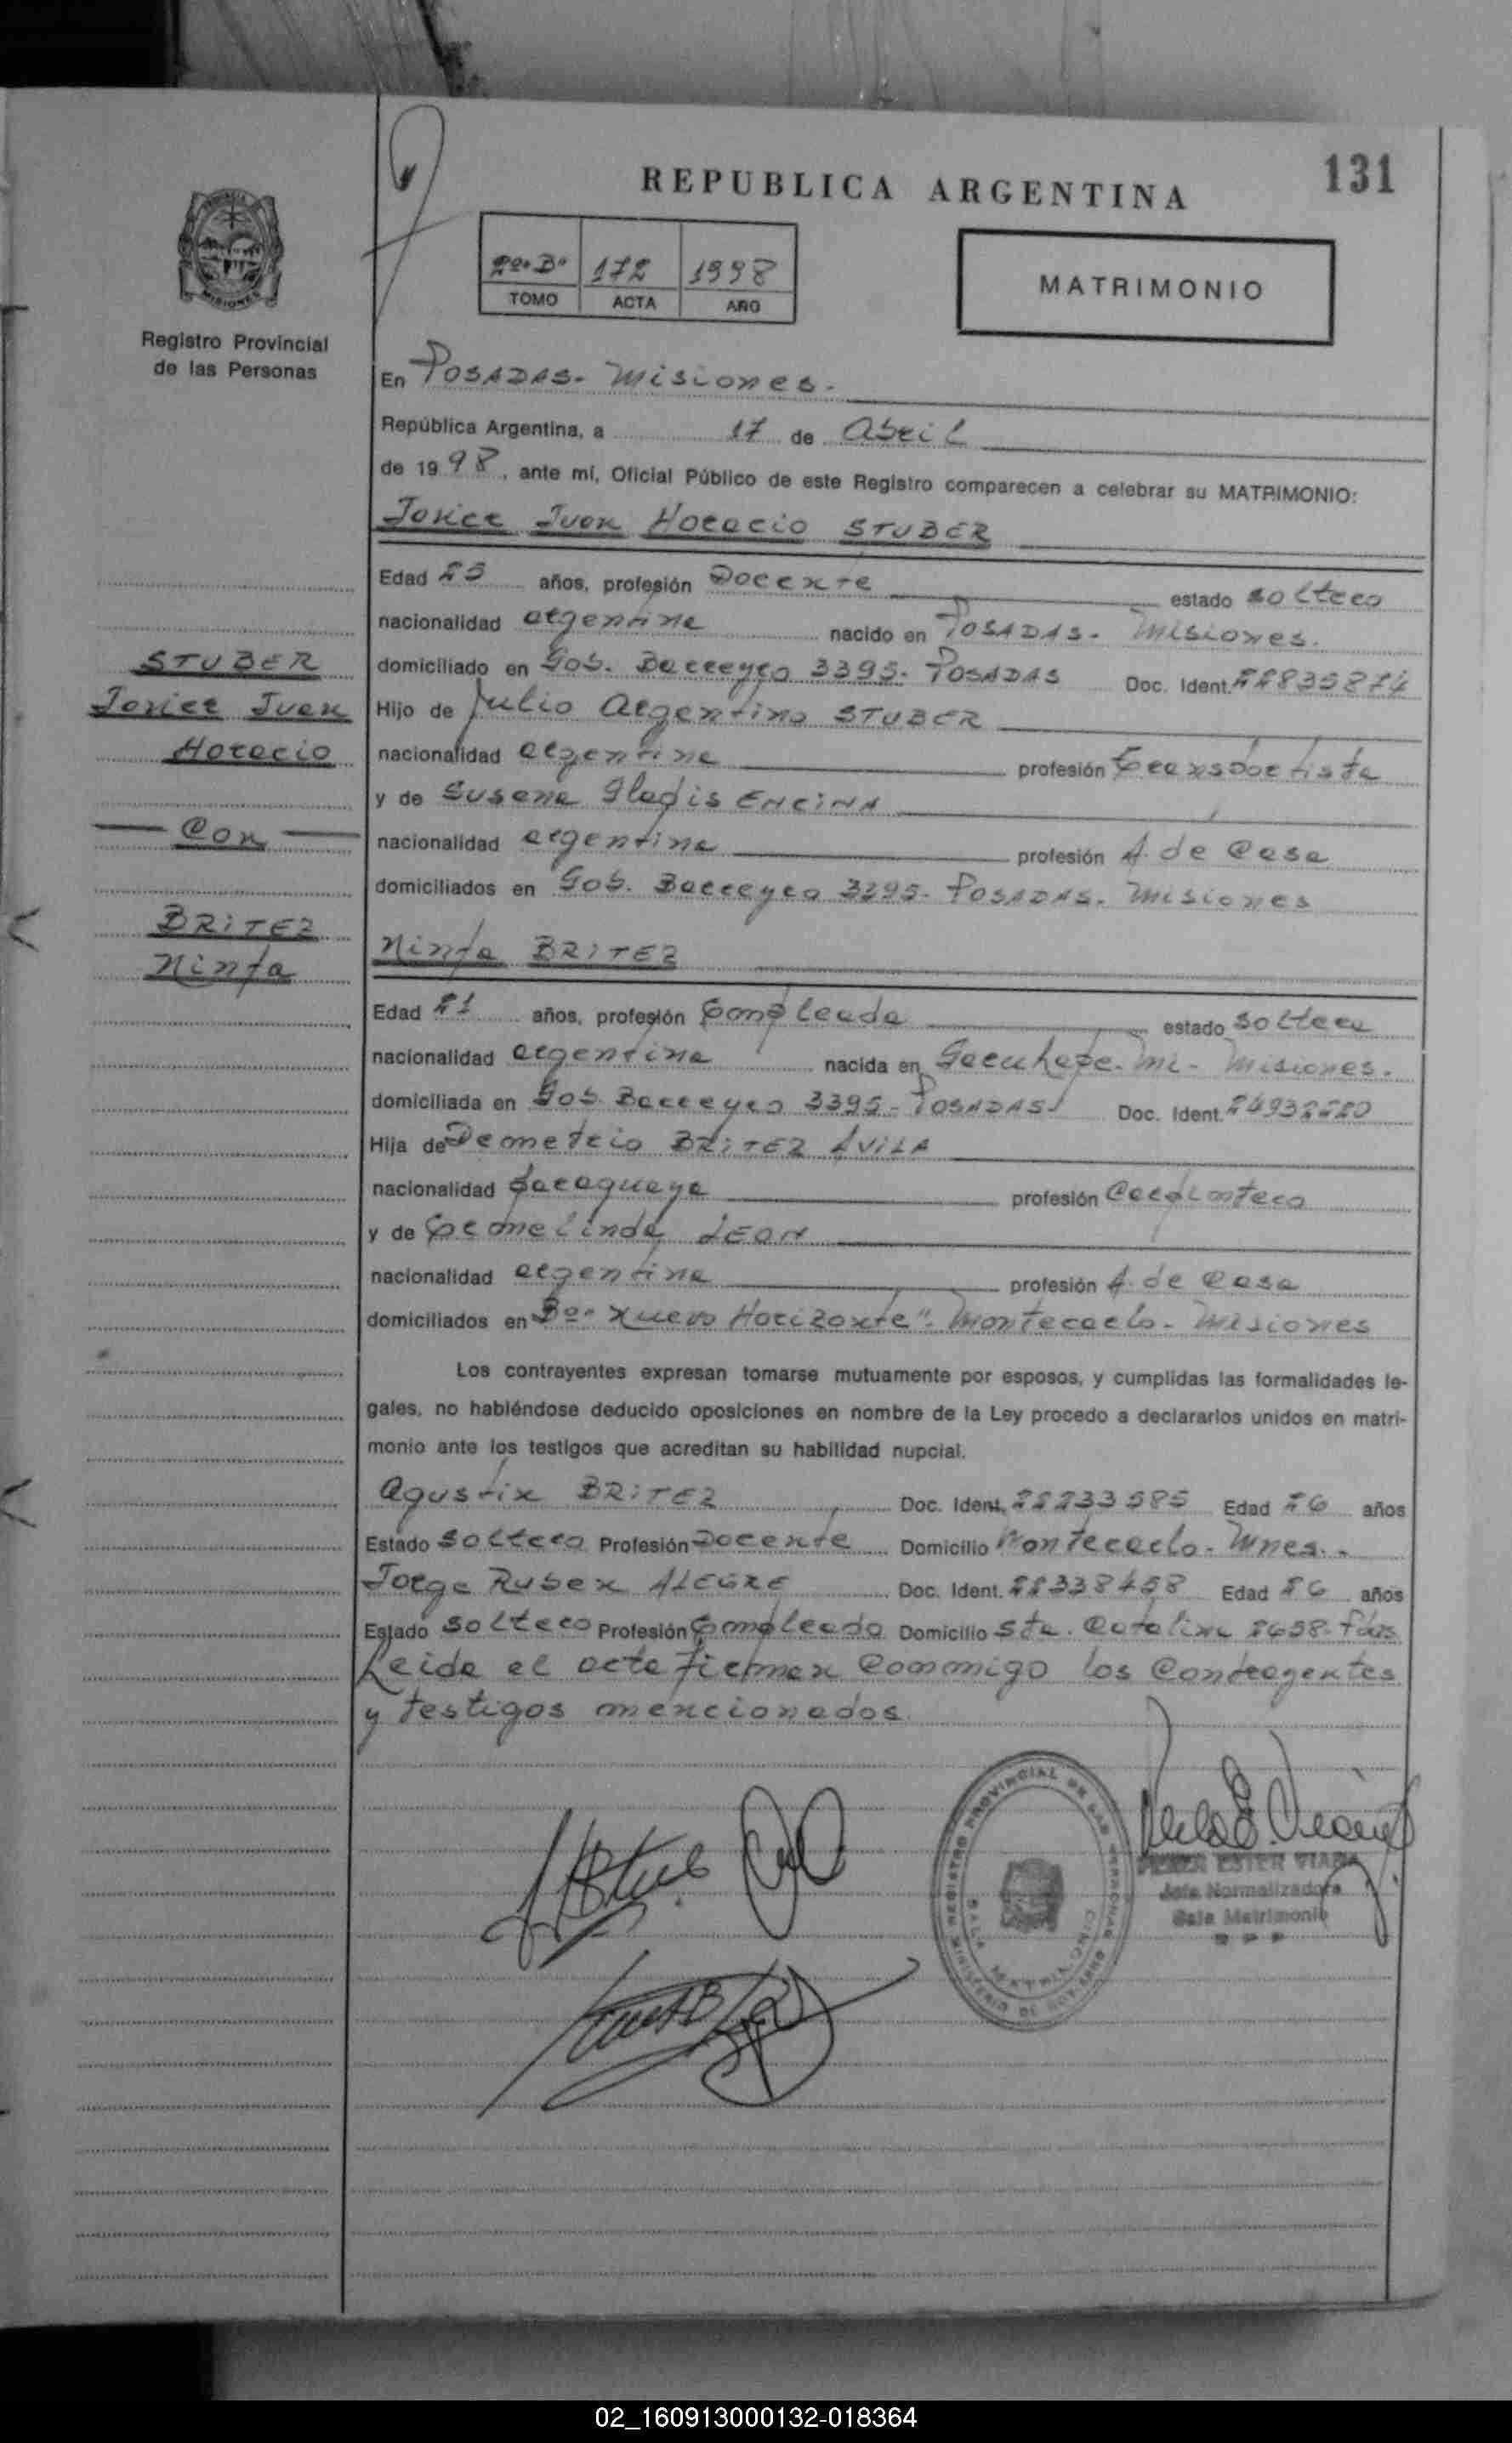 131
REPUBLICA ARGENTINA
2º. Bº 172 1998
TOMO ACTA AÑO
MATRIMONIO
MISIONES
Registro Provincial
de las Personas
En POSADAS- Misiones.
República Argentina, a 17 de Abril
de 1998, ante mí, Oficial Público de este Registro comparecen a celebrar su MATRIMONIO:
Javier Juan Horacio STUBER
Edad 25 años, profesión Docente estado soltero
nacionalidad argentina nacido en POSADAS- Misiones.
domiciliado en Gob. Barreyro 3395- POSADAS Doc. Ident. 22835874
Hijo de Julio Argentino STUBER
nacionalidad argentina profesión transportista
y de Susana Gladis ENCINA
nacionalidad argentina profesión A. de casa
domiciliados en Gob. Barreyro 3295- POSADAS- Misiones
STUBER
Javier Juan
Horacio
Con
BRITEZ
Ninfa
Ninfa BRITEZ
Edad 21 años, profesión empleada estado soltera
nacionalidad argentina nacida en Garuhape-Mi- Misiones.
domiciliada en Gob. Barreyro 3395- POSADAS Doc. Ident. 24932220
Hija de Demetrio BRITEZ AVILA
nacionalidad paraguaya profesión carpintero
y de Ermelinda LEON
nacionalidad argentina profesión A. de casa
domiciliados en Bº. Nuevo Horizonte"- Montecarlo- Misiones
Los contrayentes expresan tomarse mutuamente por esposos, y cumplidas las formalidades le-
gales, no habiéndose deducido oposiciones en nombre de la Ley procedo a declararlos unidos en matri-
monio ante los testigos que acreditan su habilidad nupcial.
Agustin BRITEZ Doc. Ident. 22233585 Edad 26 años
Estado soltero Profesión Docente Domicilio Montecarlo- Mnes.-
Jorge Ruben ALEGRE Doc. Ident. 22338458 Edad 26 años
Estado soltero Profesión empleado Domicilio Sta. Catalina 2658- Pdas
Leida el acta firman conmigo los contrayentes
y testigos mencionados.
REGISTRO PROVINCIAL DE LAS PERSONAS
MINISTERIO DE GOBIERNO
SALA MATRIMONIO
ESTER VIANA
Jefa Normalizadora
Sala Matrimonio
R P P
02_160913000132-018364